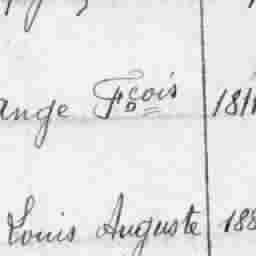 ange Fçois 181
Louis Auguste 188